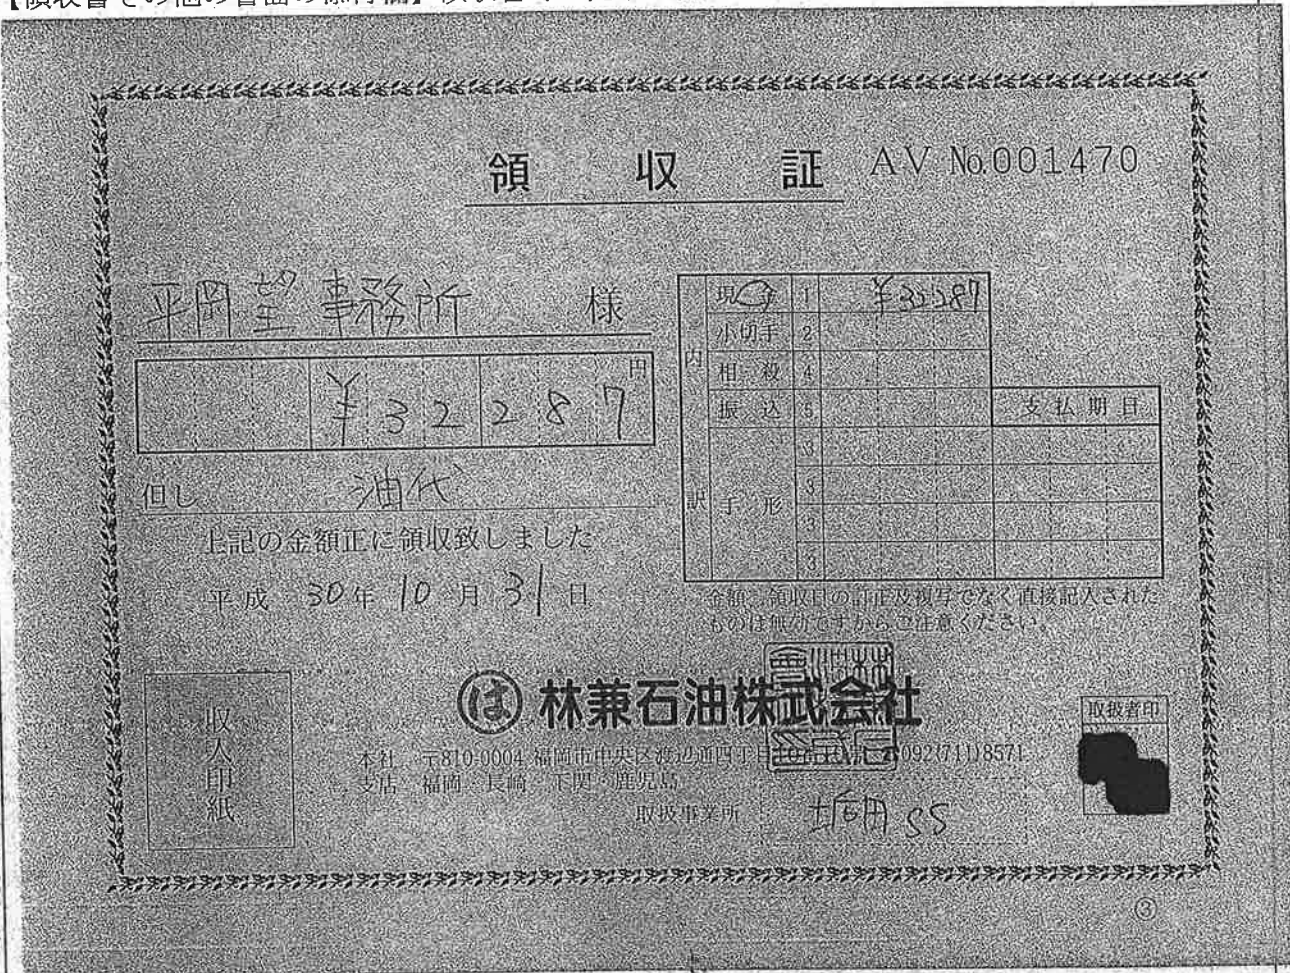 【領収書その他の書面の添付欄】
領 収 証 AV No.001470
平岡望事務所 様
¥32287円
但し 油代
上記の金額正に領収致しました
平成 30年 10月 31日
内訳
現 1 ¥32287
小切手 2
相殺 4
振込 5 支払期日
手形 3
3
3
3
金額、領収日の訂正及複写でなく直接記入された
ものは無効ですからご注意ください。
収入印紙
は 林兼石油株式会社
本社 〒810-0004 福岡市中央区渡辺通四丁目 092(711)8571
支店 福岡・長崎・下関・鹿児島
取扱事業所 SS
取扱者印
③